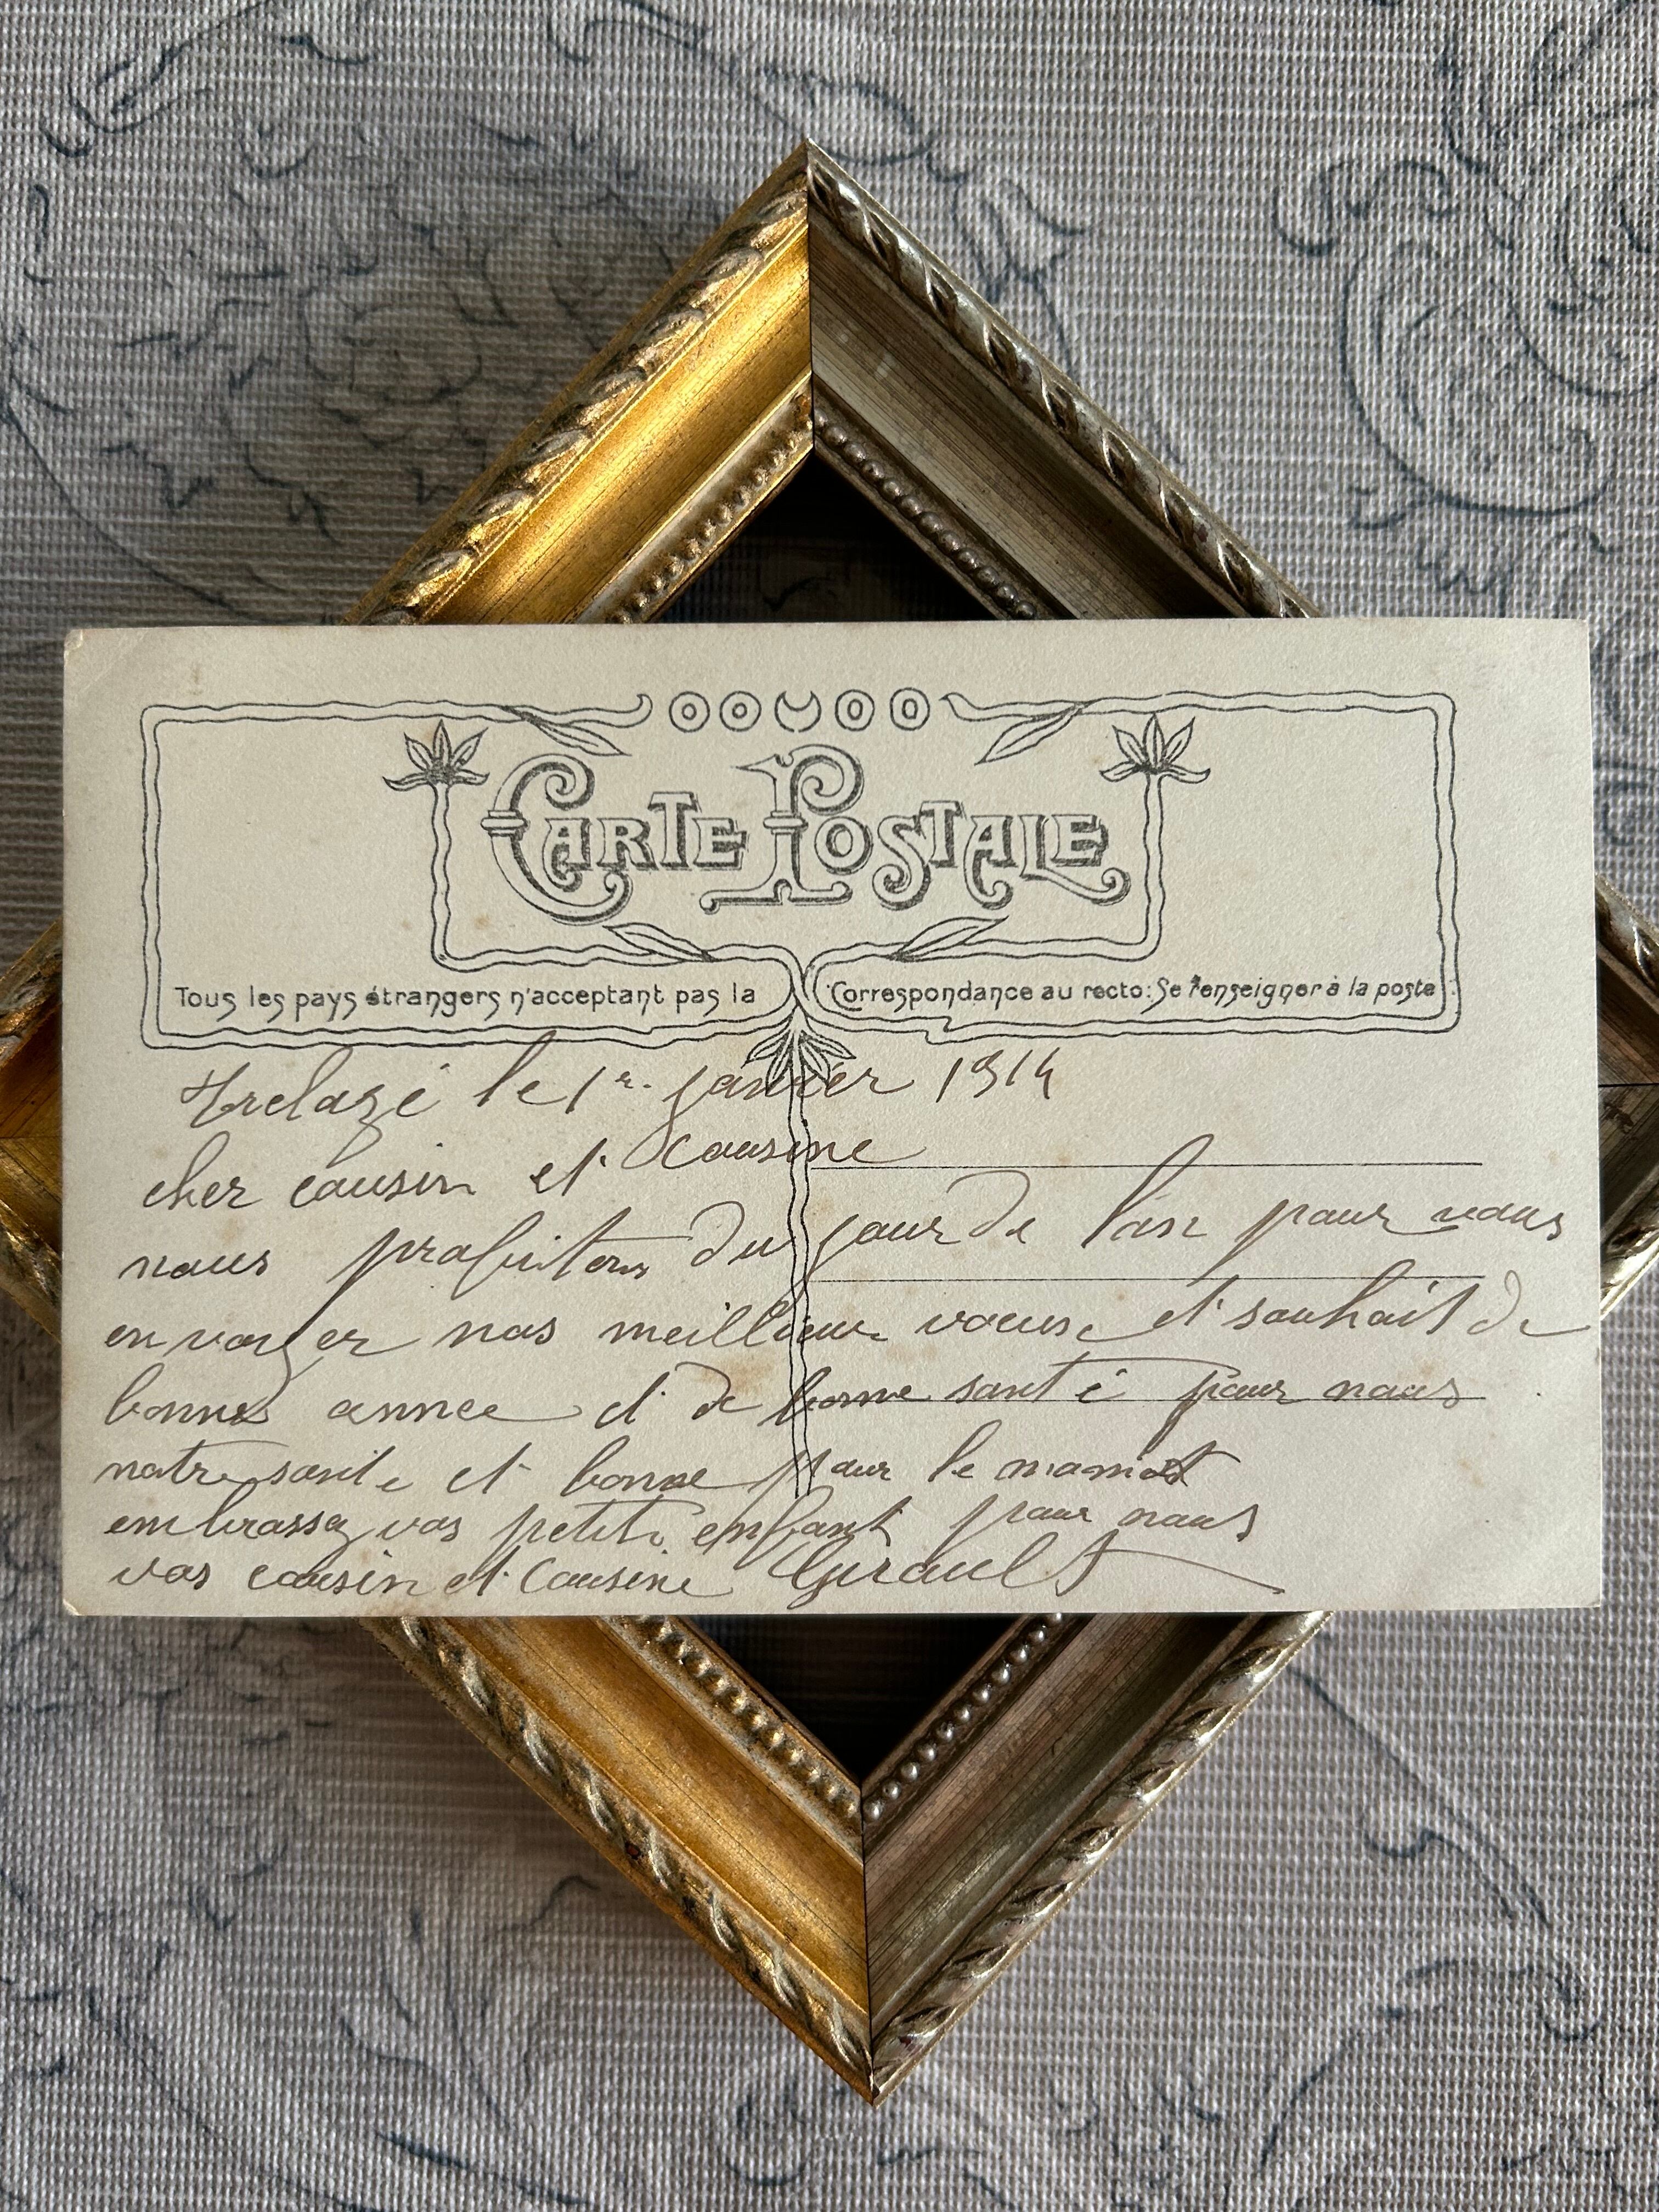 CARTE POSTALE
Tous les pays étrangers n'acceptant pas la Correspondance au recto: Se renseigner à la poste
Trelazé le 1r. janvier 1914
cher cousin et cousine
nous profitons du jour de l'an pour vous
envoyer nos meilleur voeux et souhait de
bonne annee et de bonne santé pour nous
notre santé et bonne pour le moment
embrassez vos petits enfant pour nous
vos cousin et Cousine Girault